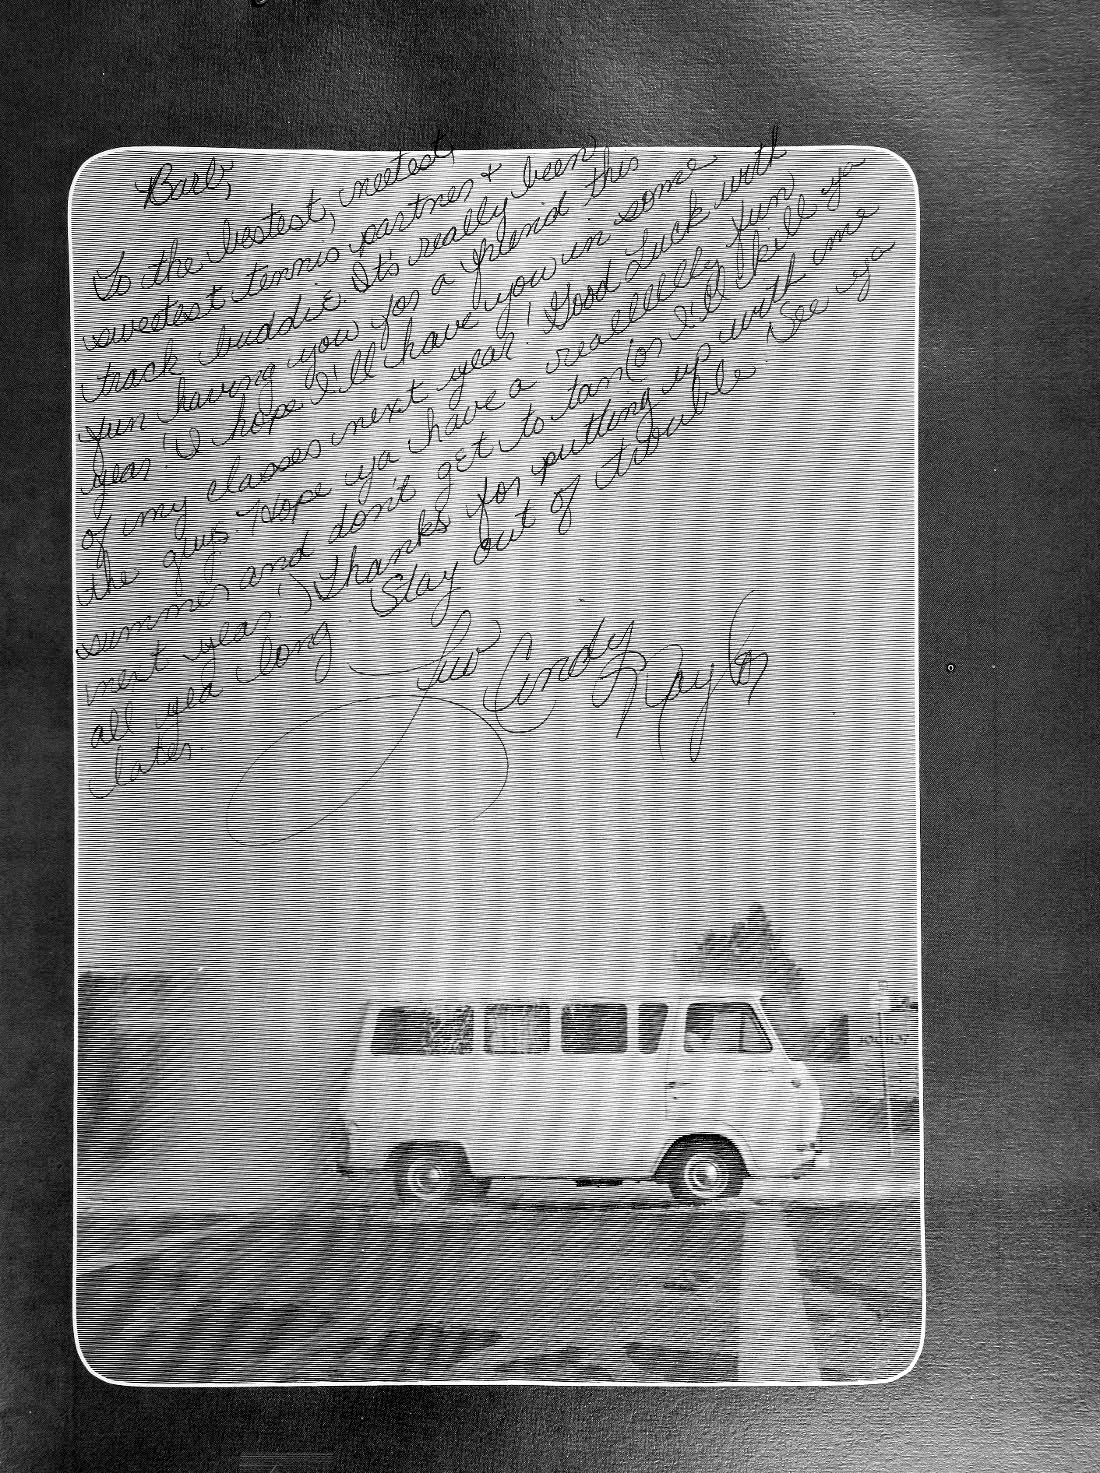 Barb,
To the bestest, neetest,
sweetest tennis partner +
track buddie. It's really been
fun having you for a friend this
year! I hope I'll have you in some
of my classes next year! Good Luck with
the guys. Hope ya have a reallllly fun
summer and don't get to tan (or I'll kill ya
next year.) Thanks for putting up with me
all yea long. Stay out of trouble. See ya
later.
Luv
Cindy